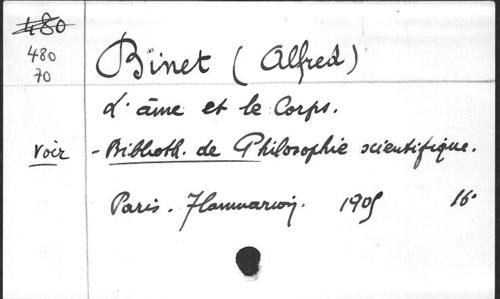 480
480
70
Binet (Alfred)
L'âme et le Corps.
voir - Biblioth. de Philosophie scientifique.
Paris. Flammarion. 1905 16°